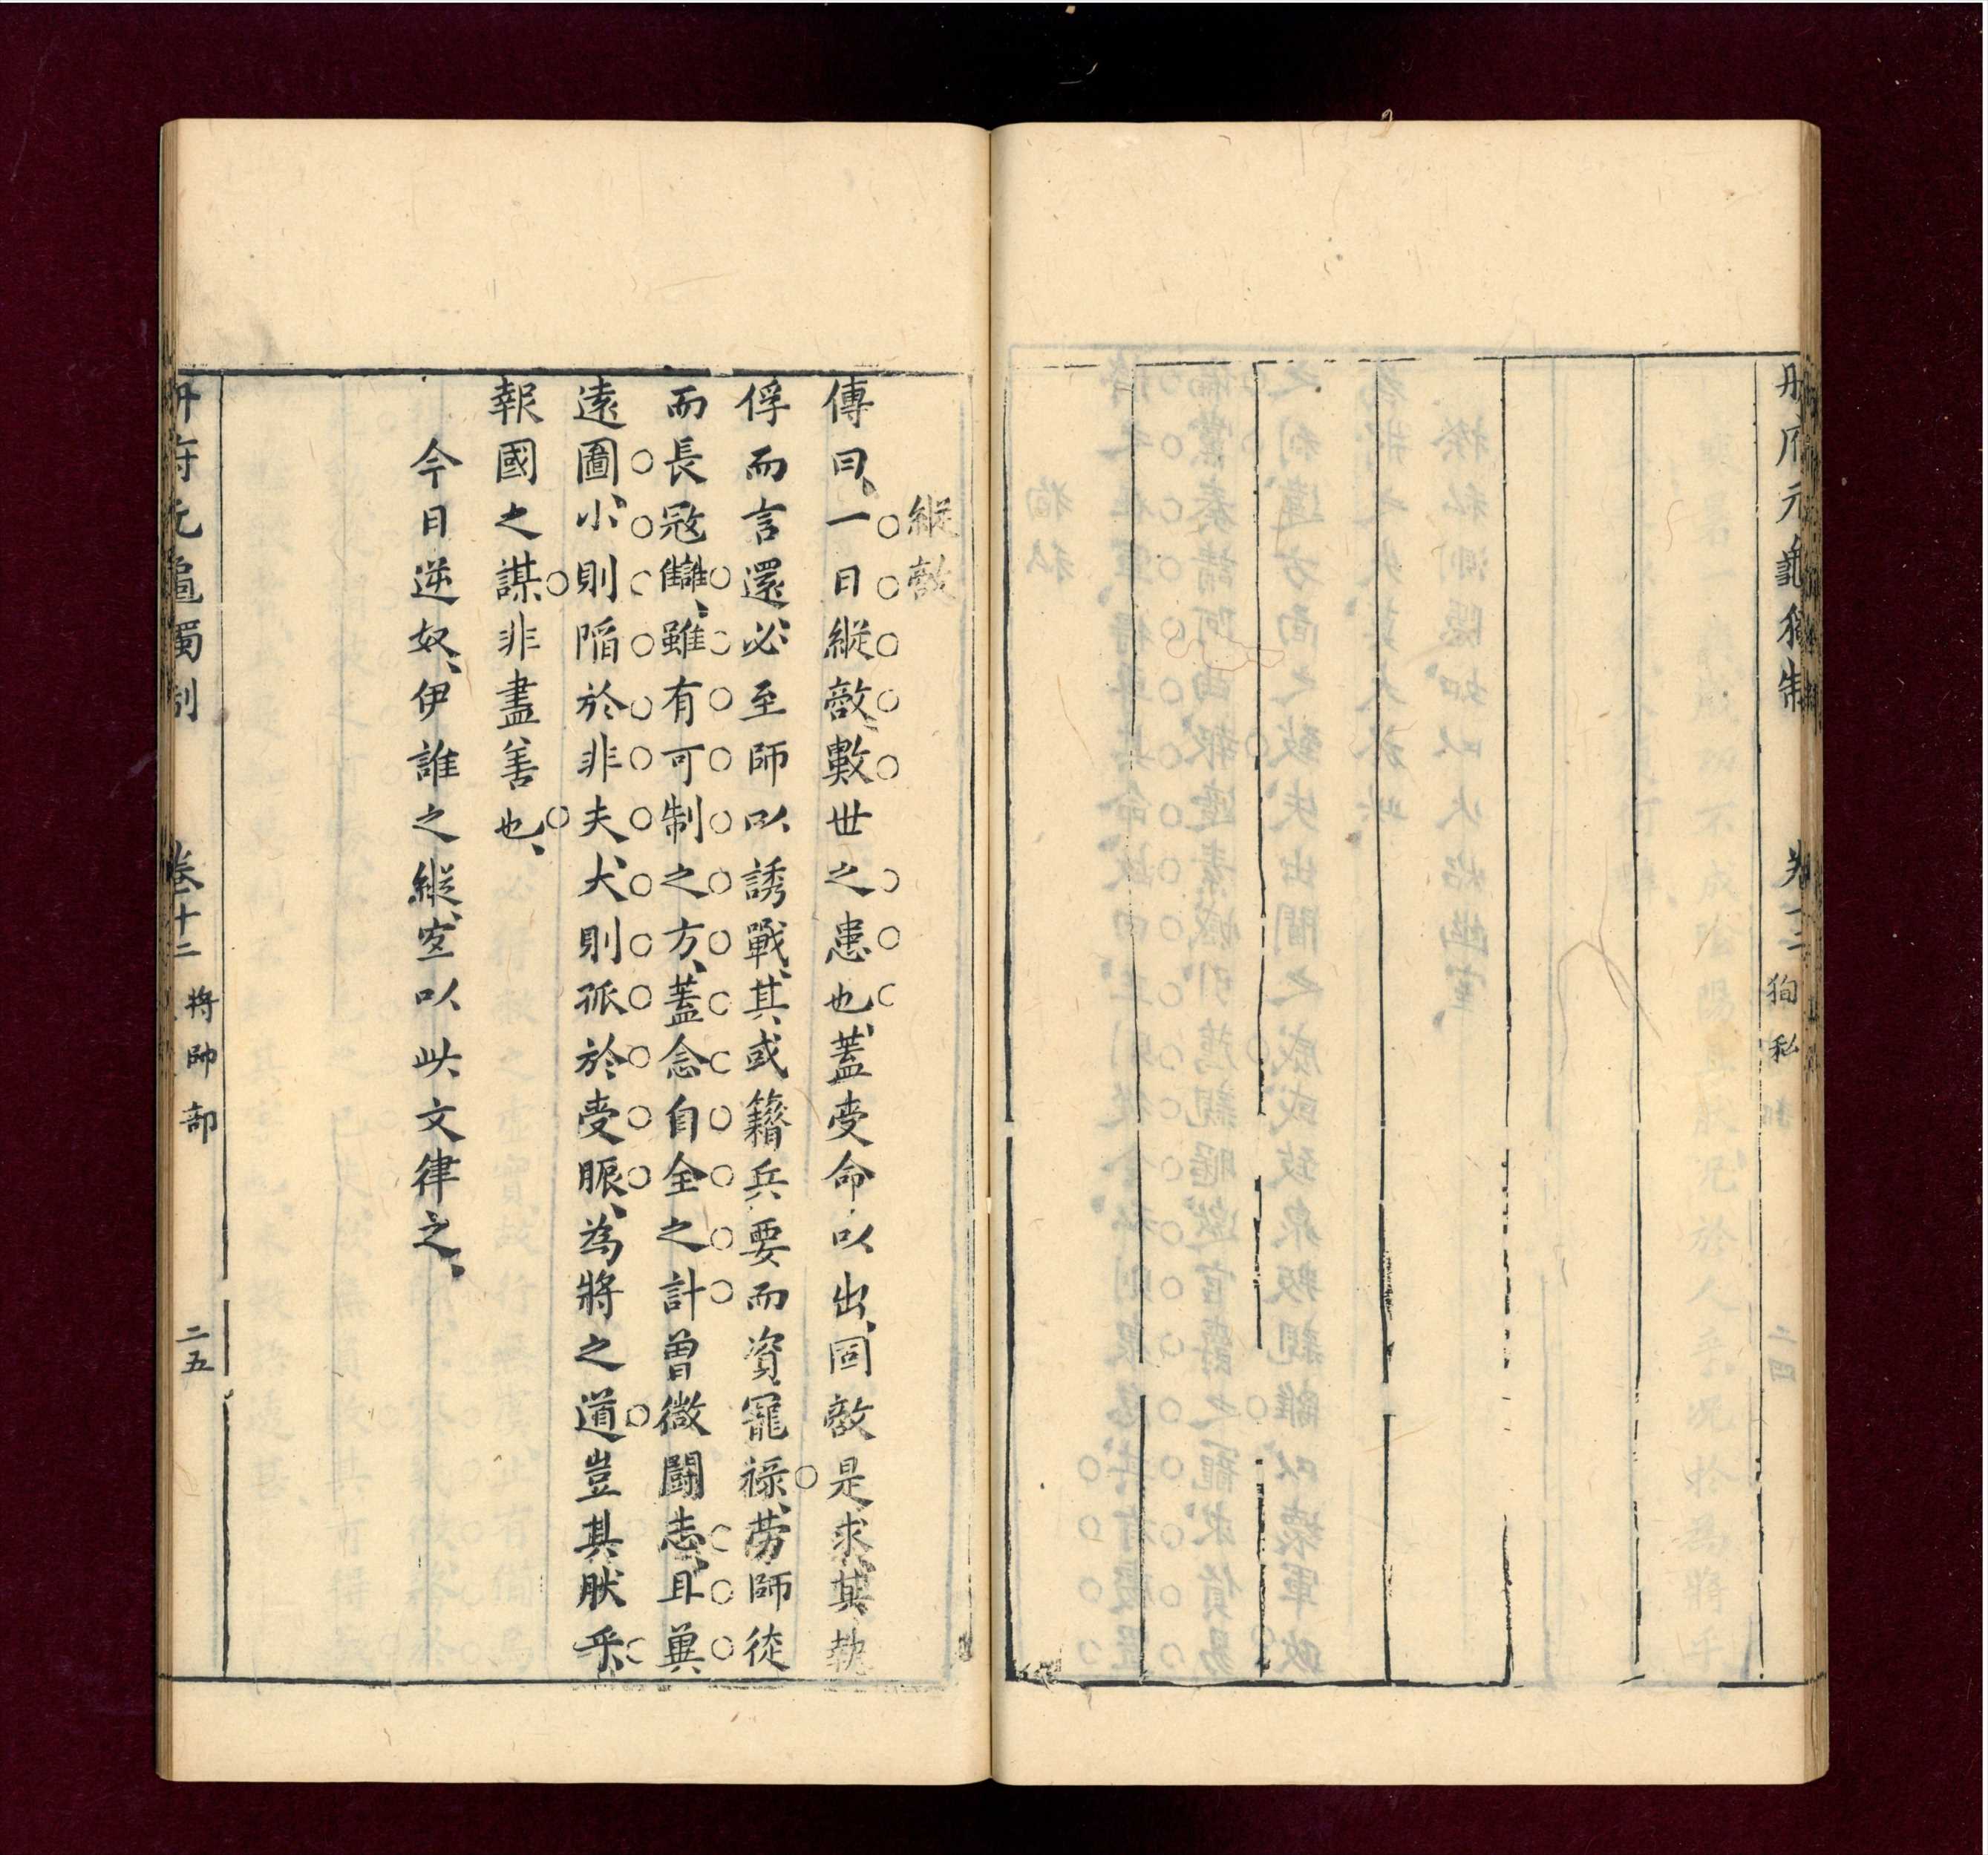 冊府元龜獨制
卷十二
狥私
縱敵
傳曰、一日縱敵、數世之患也、蓋受命以出、固敵是求、其執
俘而言還、必至師以誘戰、其或籍兵要而資寵祿、勞師徒
而長寇讎、雖有可制之方、蓋念自全之計曾微鬪志、且兾
遠圖、小則陷於非夫、大則孤於受脤、為將之道豈其肰乎、
報國之謀非盡善也、
今日逆奴、伊誰之縱、宜以此文律之、
冊府元龜獨制
卷十二
將帥部
二五